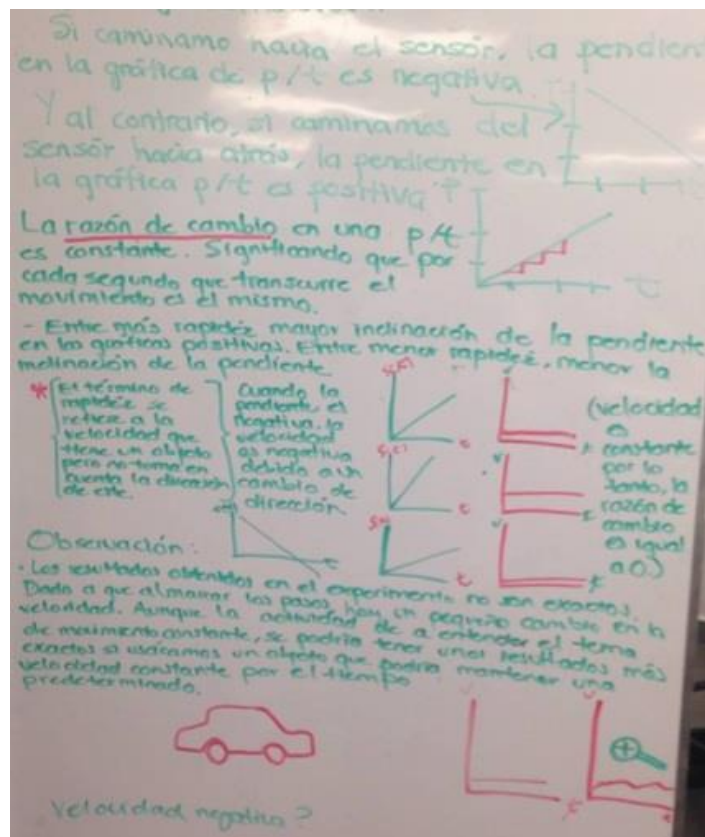 Si caminamo hacia el sensor, la pendien
en la gráfica de p/t es negativa.
Y al contrario, si caminamos del
sensor hacia atrás, la pendiente en
la gráfica p/t es positiva
La razón de cambio en una p/t
es constante. Significando que por
cada segundo que transcurre el
movimiento es el mismo.
- Entre más rapidéz mayor inclinación de la pendiente
en las gráficas positivas. Entre menor rapidéz, menor la
inclinación de la pendiente
* El término de
rapidéz se
refiere a la
velocidad que
tiene un objeto
pero no toma en
cuenta la dirección
de este.
Cuando la
pendiente es
negativa, la
velocidad
es negativa
debido a un
cambio de
dirección
(velocidad
constante
por lo
tanto, la
razón de
cambio
es igual
a 0.)
Observación:
- Los resultados obtenidos en el experimento no son exactos.
Dado a que al marcar los pasos, hay un pequeño cambio en la
velocidad. Aunque la actividad de a entender el tema
de movimiento constante, se podría tener unos resultados más
exactos si usáramos un objeto que podría mantener una
velocidad constante por el tiempo
predeterminado.
Velocidad negativa?